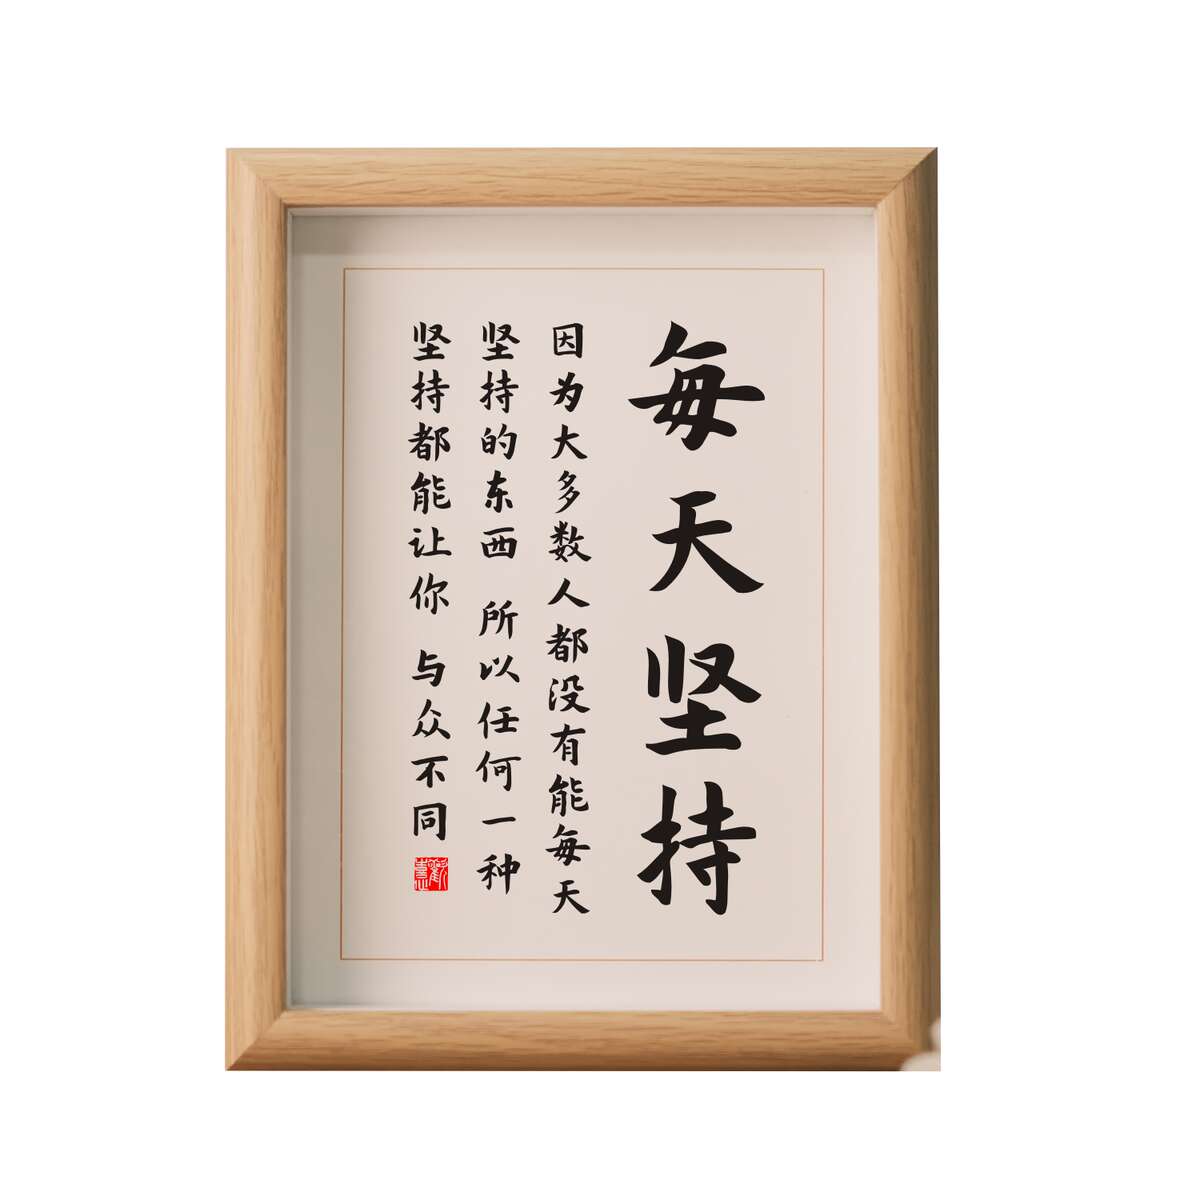 每天坚持
因为大多数人都没有能每天
坚持的东西 所以任何一种
坚持都能让你 与众不同